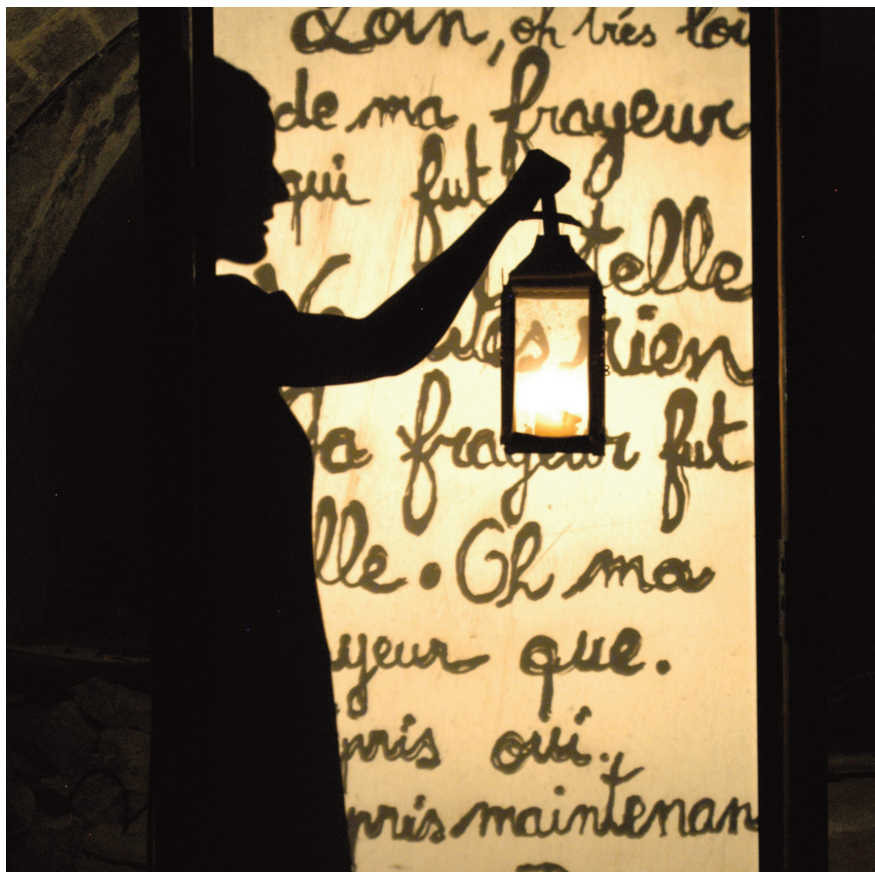 Loin, oh très loi
de ma frayeur
qui fut
telle
rien
la frayeur fut
lle. Oh ma
yeur que.
pris oui.
pris maintenan